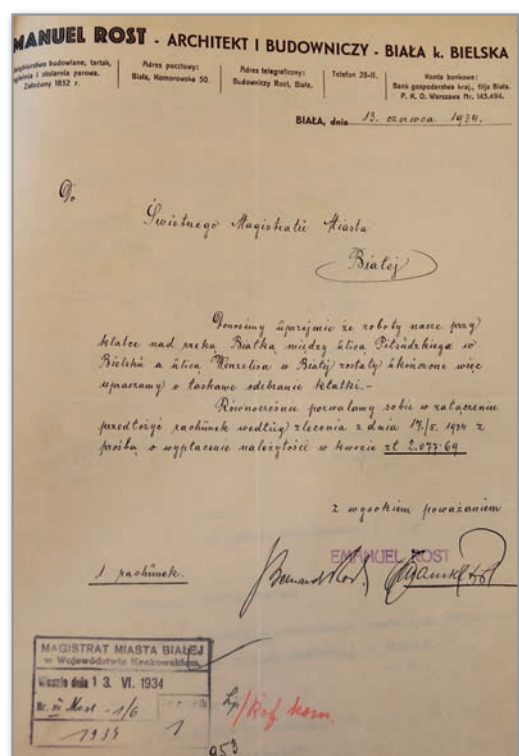 MANUEL ROST - ARCHITEKT I BUDOWNICZY - BIAŁA k. BIELSKA
budowlane, tartak,
i stolarnia parowa.
Założony 1852 r.
Adres pocztowy:
Biała, Komorowska 50.
Adres telegraficzny:
Budowniczy Rost, Biała.
Telefon 28-11.
Konta bankowe:
Bank gospodarstwa kraj., filja Biała.
P. K. O. Warszawa Nr. 145.494.
BIAŁA, dnia 13. czerwca 1934.
Do
Świetnego Magistratu Miasta
Białej
Donosimy uprzejmie że roboty nasze przy
kładce nad rzeką Białką między ulicą Piłsudzkiego w
Bielsku a ulicą Wenzelisa w Białej zostały ukończone więc
upraszamy o łaskawe odebranie kładki.-
Równocześnie pozwalamy sobie w załączeniu
przedłożyć rachunek według zlecenia z dnia 17./5. 1934 z
prośbą o wypłacenie należytości w kwocie zł 2.077.69
z wysokiem poważaniem
EMANUEL ROST
1 rachunek.
MAGISTRAT MIASTA BIAŁEJ
w Województwie Krakowskiem
Weszło dnia 13. VI. 1934
Nr. III - 1/6
1934 1
953